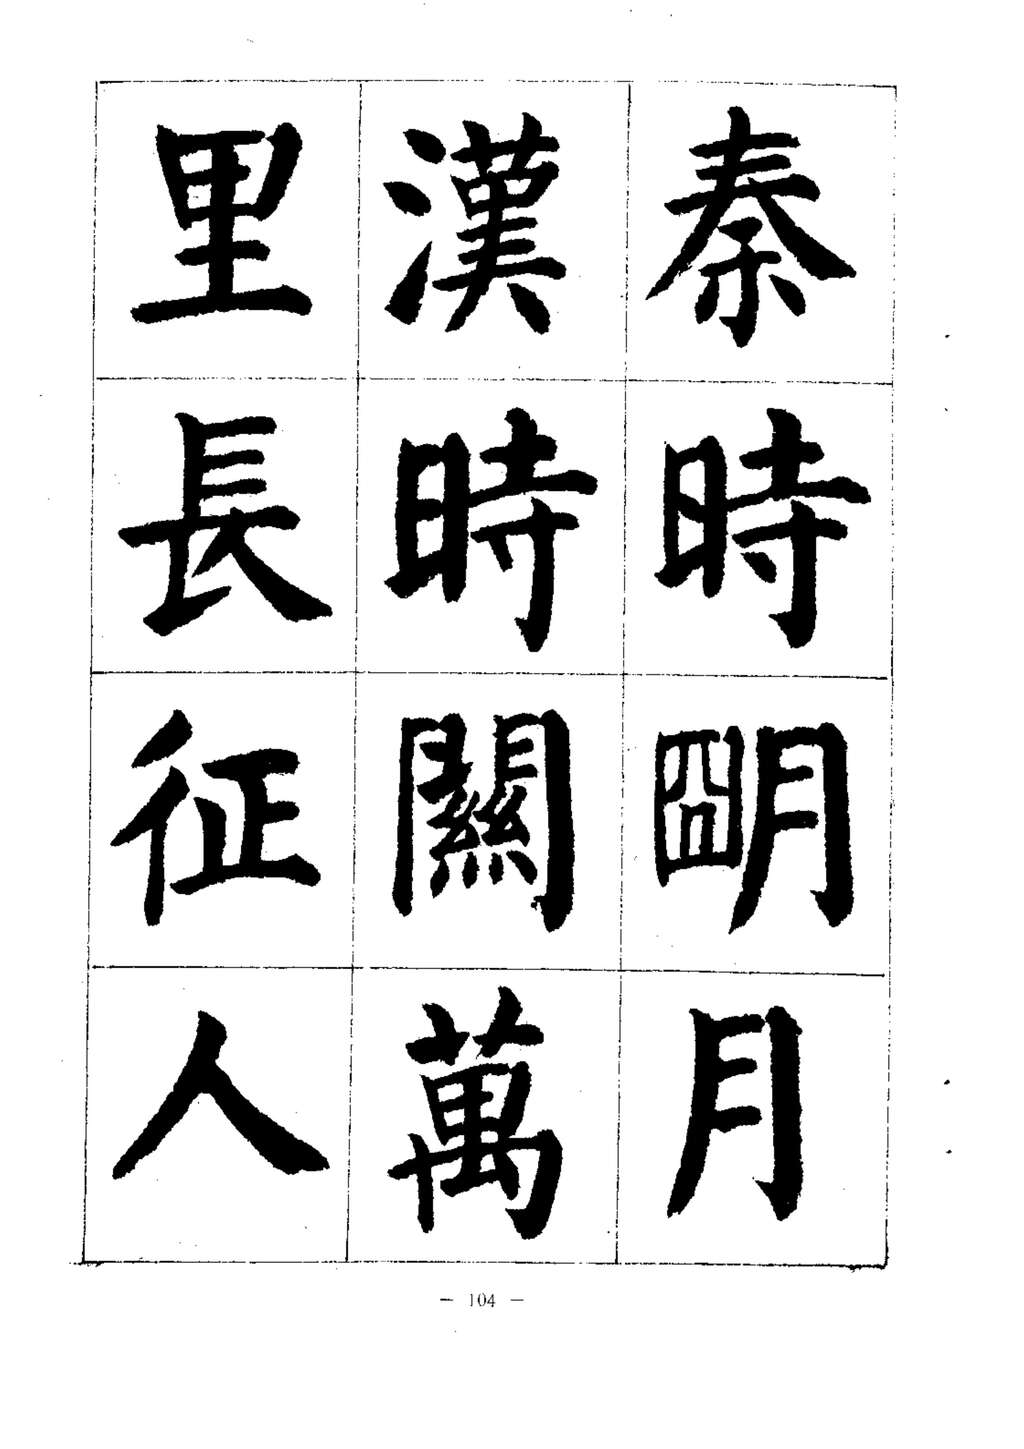 秦時朙月
漢時關萬
里長征人
— 104 —